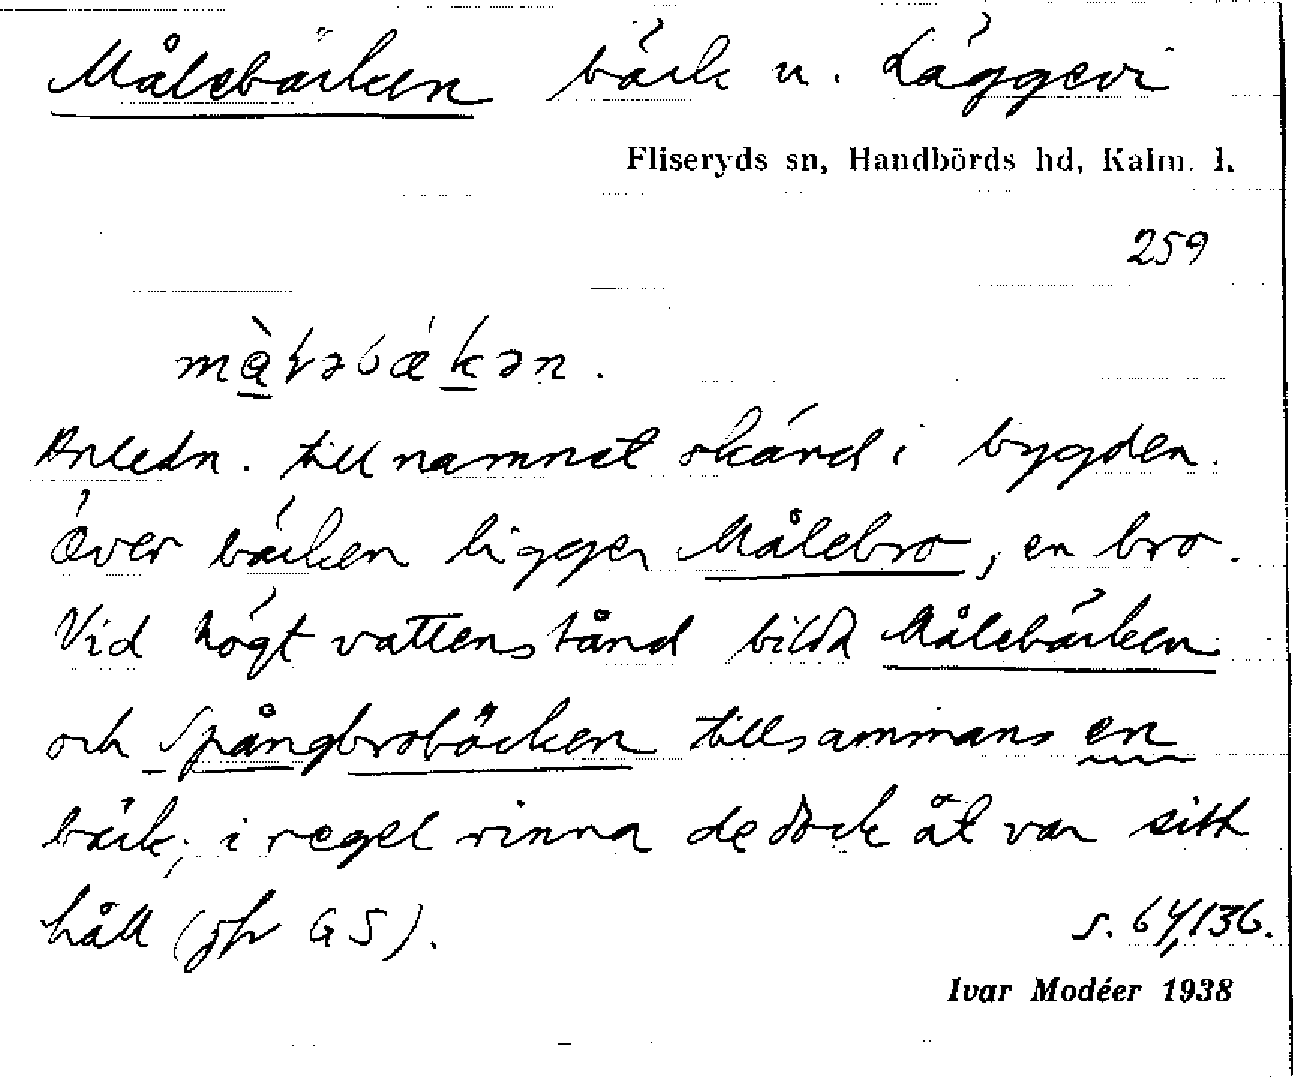 Målebäcken bäck u. Läggevi
Fliseryds sn, Handbörds hd, Kalm. l.
259
Anledn. till namnet okänd i bygden.
Över bäcken ligger Målebro, en bro.
Vid högt vattenstånd bilda Målebäcken
och Spångbrobäcken tillsammans en
bäck; i regel rinna de dock åt var sitt
håll (jfr GS).
s. 64/136.
Ivar Modéer 1938